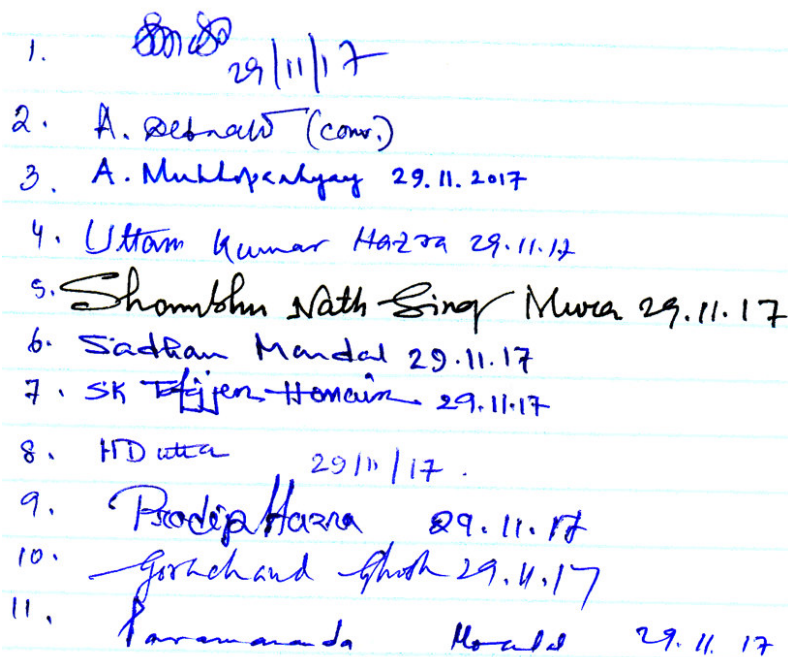 1. 29/11/17
2. A. Debnath (conv.)
3. A. Mukhopadhyay 29.11.2017
4. Uttam Kumar Hazra 29.11.17
5. Shambhu Nath Sing Mura 29.11.17
6. Sadhan Mandal 29.11.17
7. SK 29.11.17
8. HDutta 29/11/17.
9. Prodip Hazra 29.11.17
10. Gorachand Ghosh 29.11.17
11. Paramananda Mondal 29.11.17